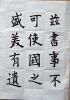 茲書事不
可使國之
盛美有遺